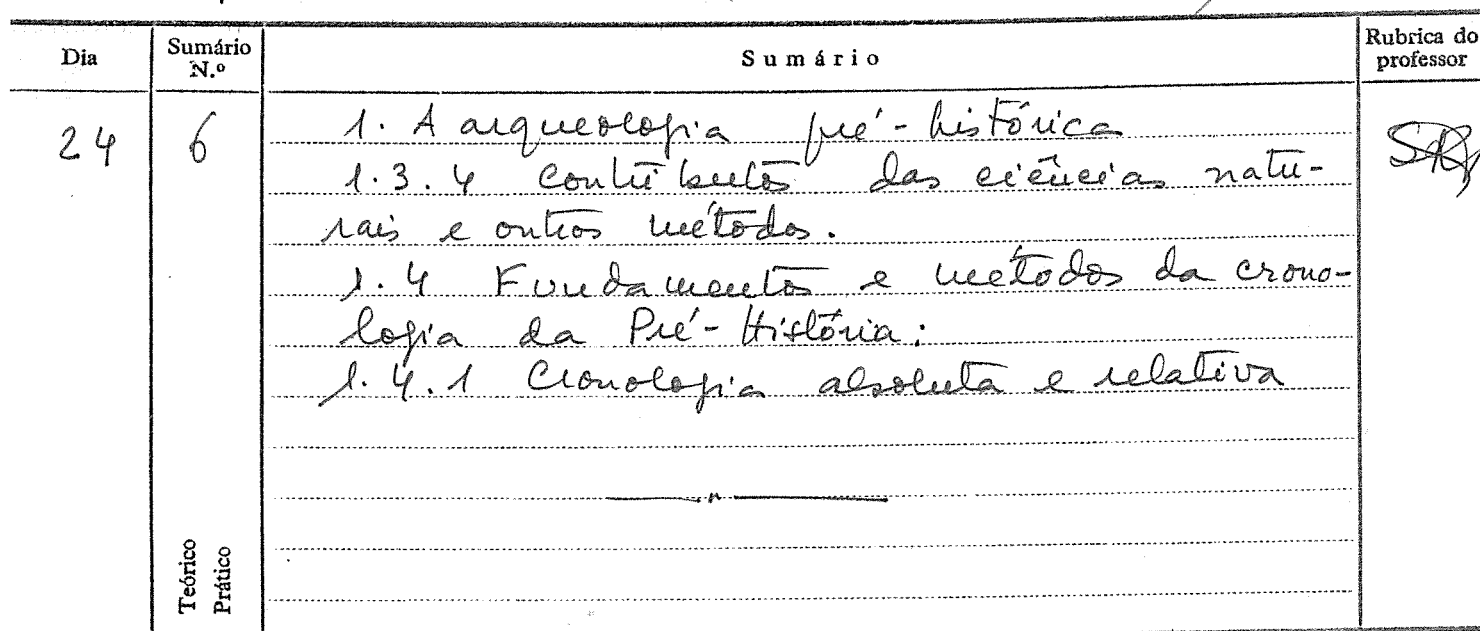 Dia Sumário N.º Sumário Rubrica do professor
24 6 1. A arqueologia pré-histórica
1.3.4 Contributos das ciências natu-
rais e outros métodos.
1.4 Fundamentos e metodos da crono-
logia da Pré-História:
1.4.1 Cronologia absoluta e relativa
Teórico
Prático